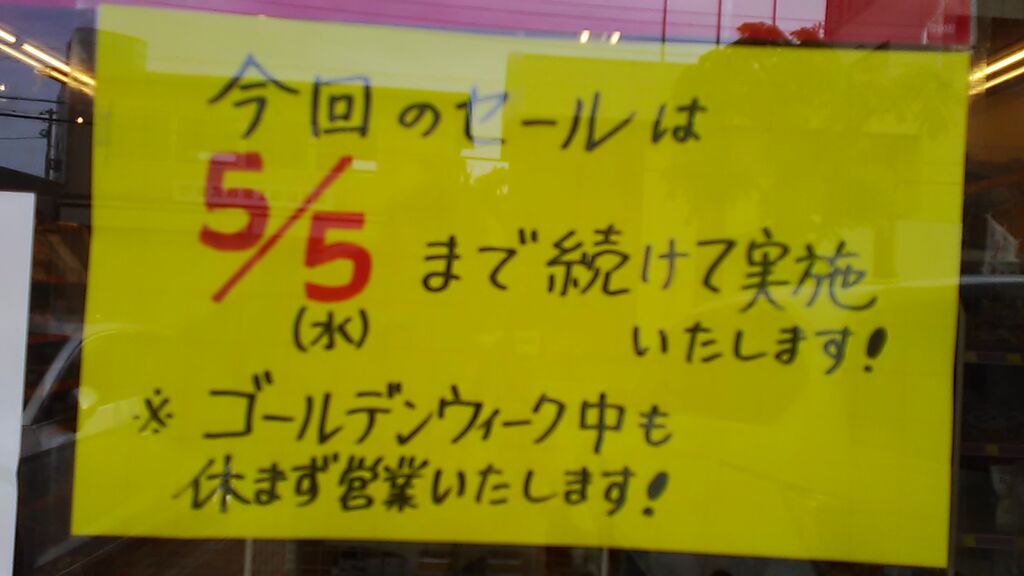 今回のセールは
5/5
(水)
まで続けて実施
いたします!
※ ゴールデンウィーク中も
休まず営業いたします!